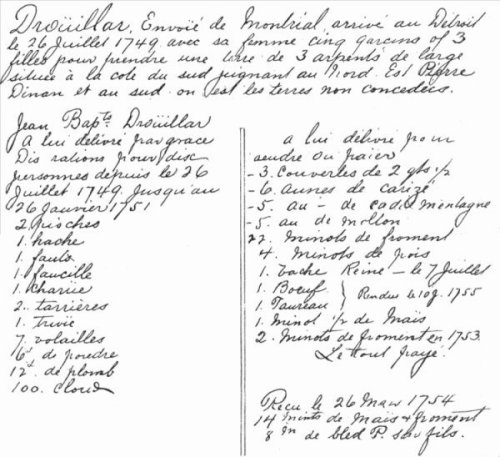 Droüillar, Envoiié de Montréal arrivé au Détroit
le 26 Juillet 1749 avec sa femme cinq garcins of 3
filles pour prendre une terre de 3 arpents de large
située à la cote du sud joignant au Nord. Est Pierre
Dinan et au sud. ou est les terres non concedées.
Jean Bapte Droüillar
A lui délivré par grace
Dis rations pour disc
personnes depuis le 26
Juillet 1749. Jusqu'au
26 Janvier 1751
2 pioches
1 hache
1 faulx
1 faucille
1 chariie
2 tarrières
1. truie
7. volailles
6d. de poudre
12d. de plomb
100. cloud
a lui délivré pour
rendre ou paier
- 3. Couverles de 2 pts ½
- 6. aunes de carizé
- 5. au - de cadis montagne
- 5. au de mollon
22. minots de froment
4. Minots de pois
1. Vache Reine - le 7 Juillet
1. Boeuf
1. Taureau } Rendus le 10 J. 1755
1. Minot ½ de Maïs
2. Minots de froment en 1753.
Le tout payé.
Recu le 26 Mars 1754
14 mints de Mais & froment
8 m de bled P. son fils.